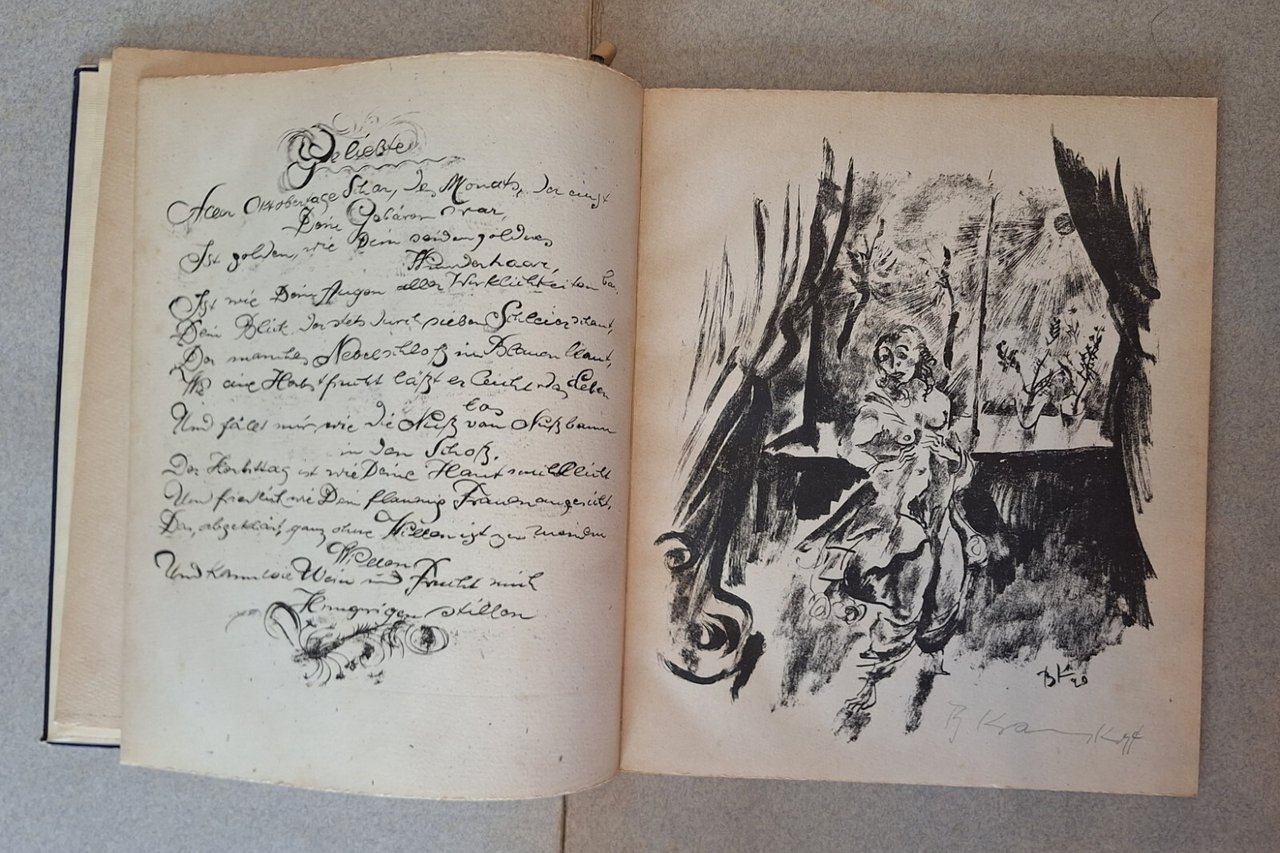 Geliebte
Aller Oktobertage Schar, des Monats, der einst
Deine Gebärerin war,
Ist golden, wie Dein seidengoldnes
Wunderhaar,
Ist wie Dein Augen aller Wirklichkeiten bar.
Dein Blick der stets durch sieben Schleier schaut,
Der manches Nebelschloß im Blauen baut,
Wie eine Herbstfrucht läßt er leicht das Leben
los
Und fällt mir, wie die Nuß vom Nußbaum
in den Schoß.
Der Herbsttag ist wie Deine Haut
Und wie Dein Frauenangesicht,
Das, abgeklärt, ganz ohne Willen ist zu meinem
Willen
Und kann wie Wein und Frucht mich
Hungrigen stillen
BK 20
B Kramkopf